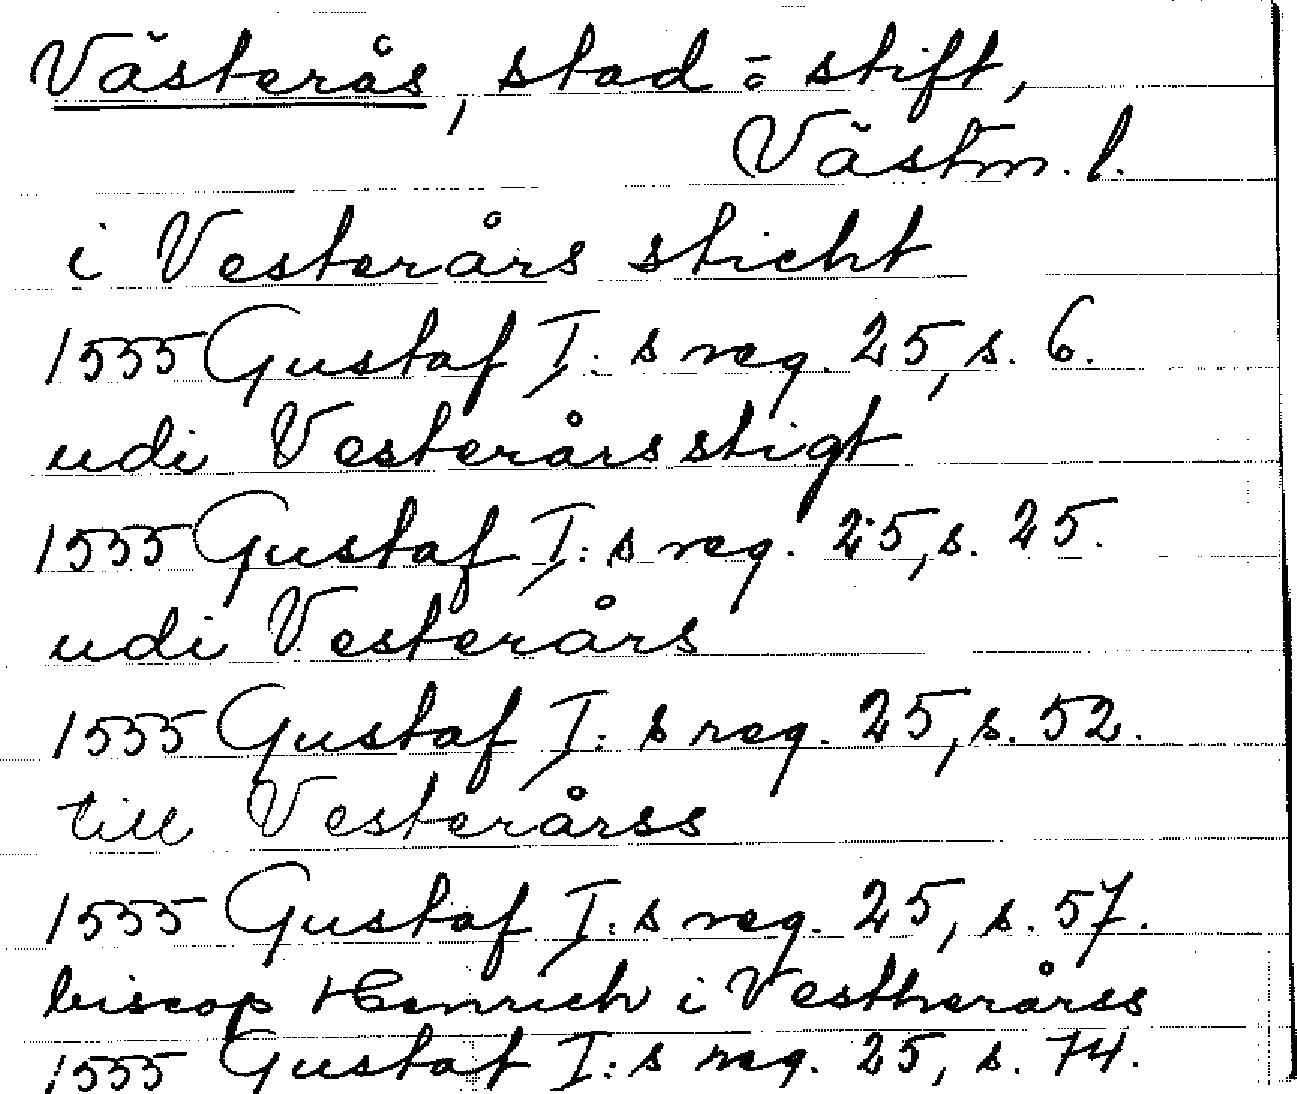 Västerås, stad o stift,
Västm. l.
i Vesterårs sticht
1555 Gustaf I:s reg. 25, s. 6.
udi Vesterårs stigt
1555 Gustaf I:s reg. 25, s. 25.
udi Vesterårs
1555 Gustaf I:s reg. 25, s. 52.
till Vesterårss
1555 Gustaf I:s reg. 25, s. 57.
biscop Henrich i Vestherårss
1555 Gustaf I:s reg. 25, s. 74.